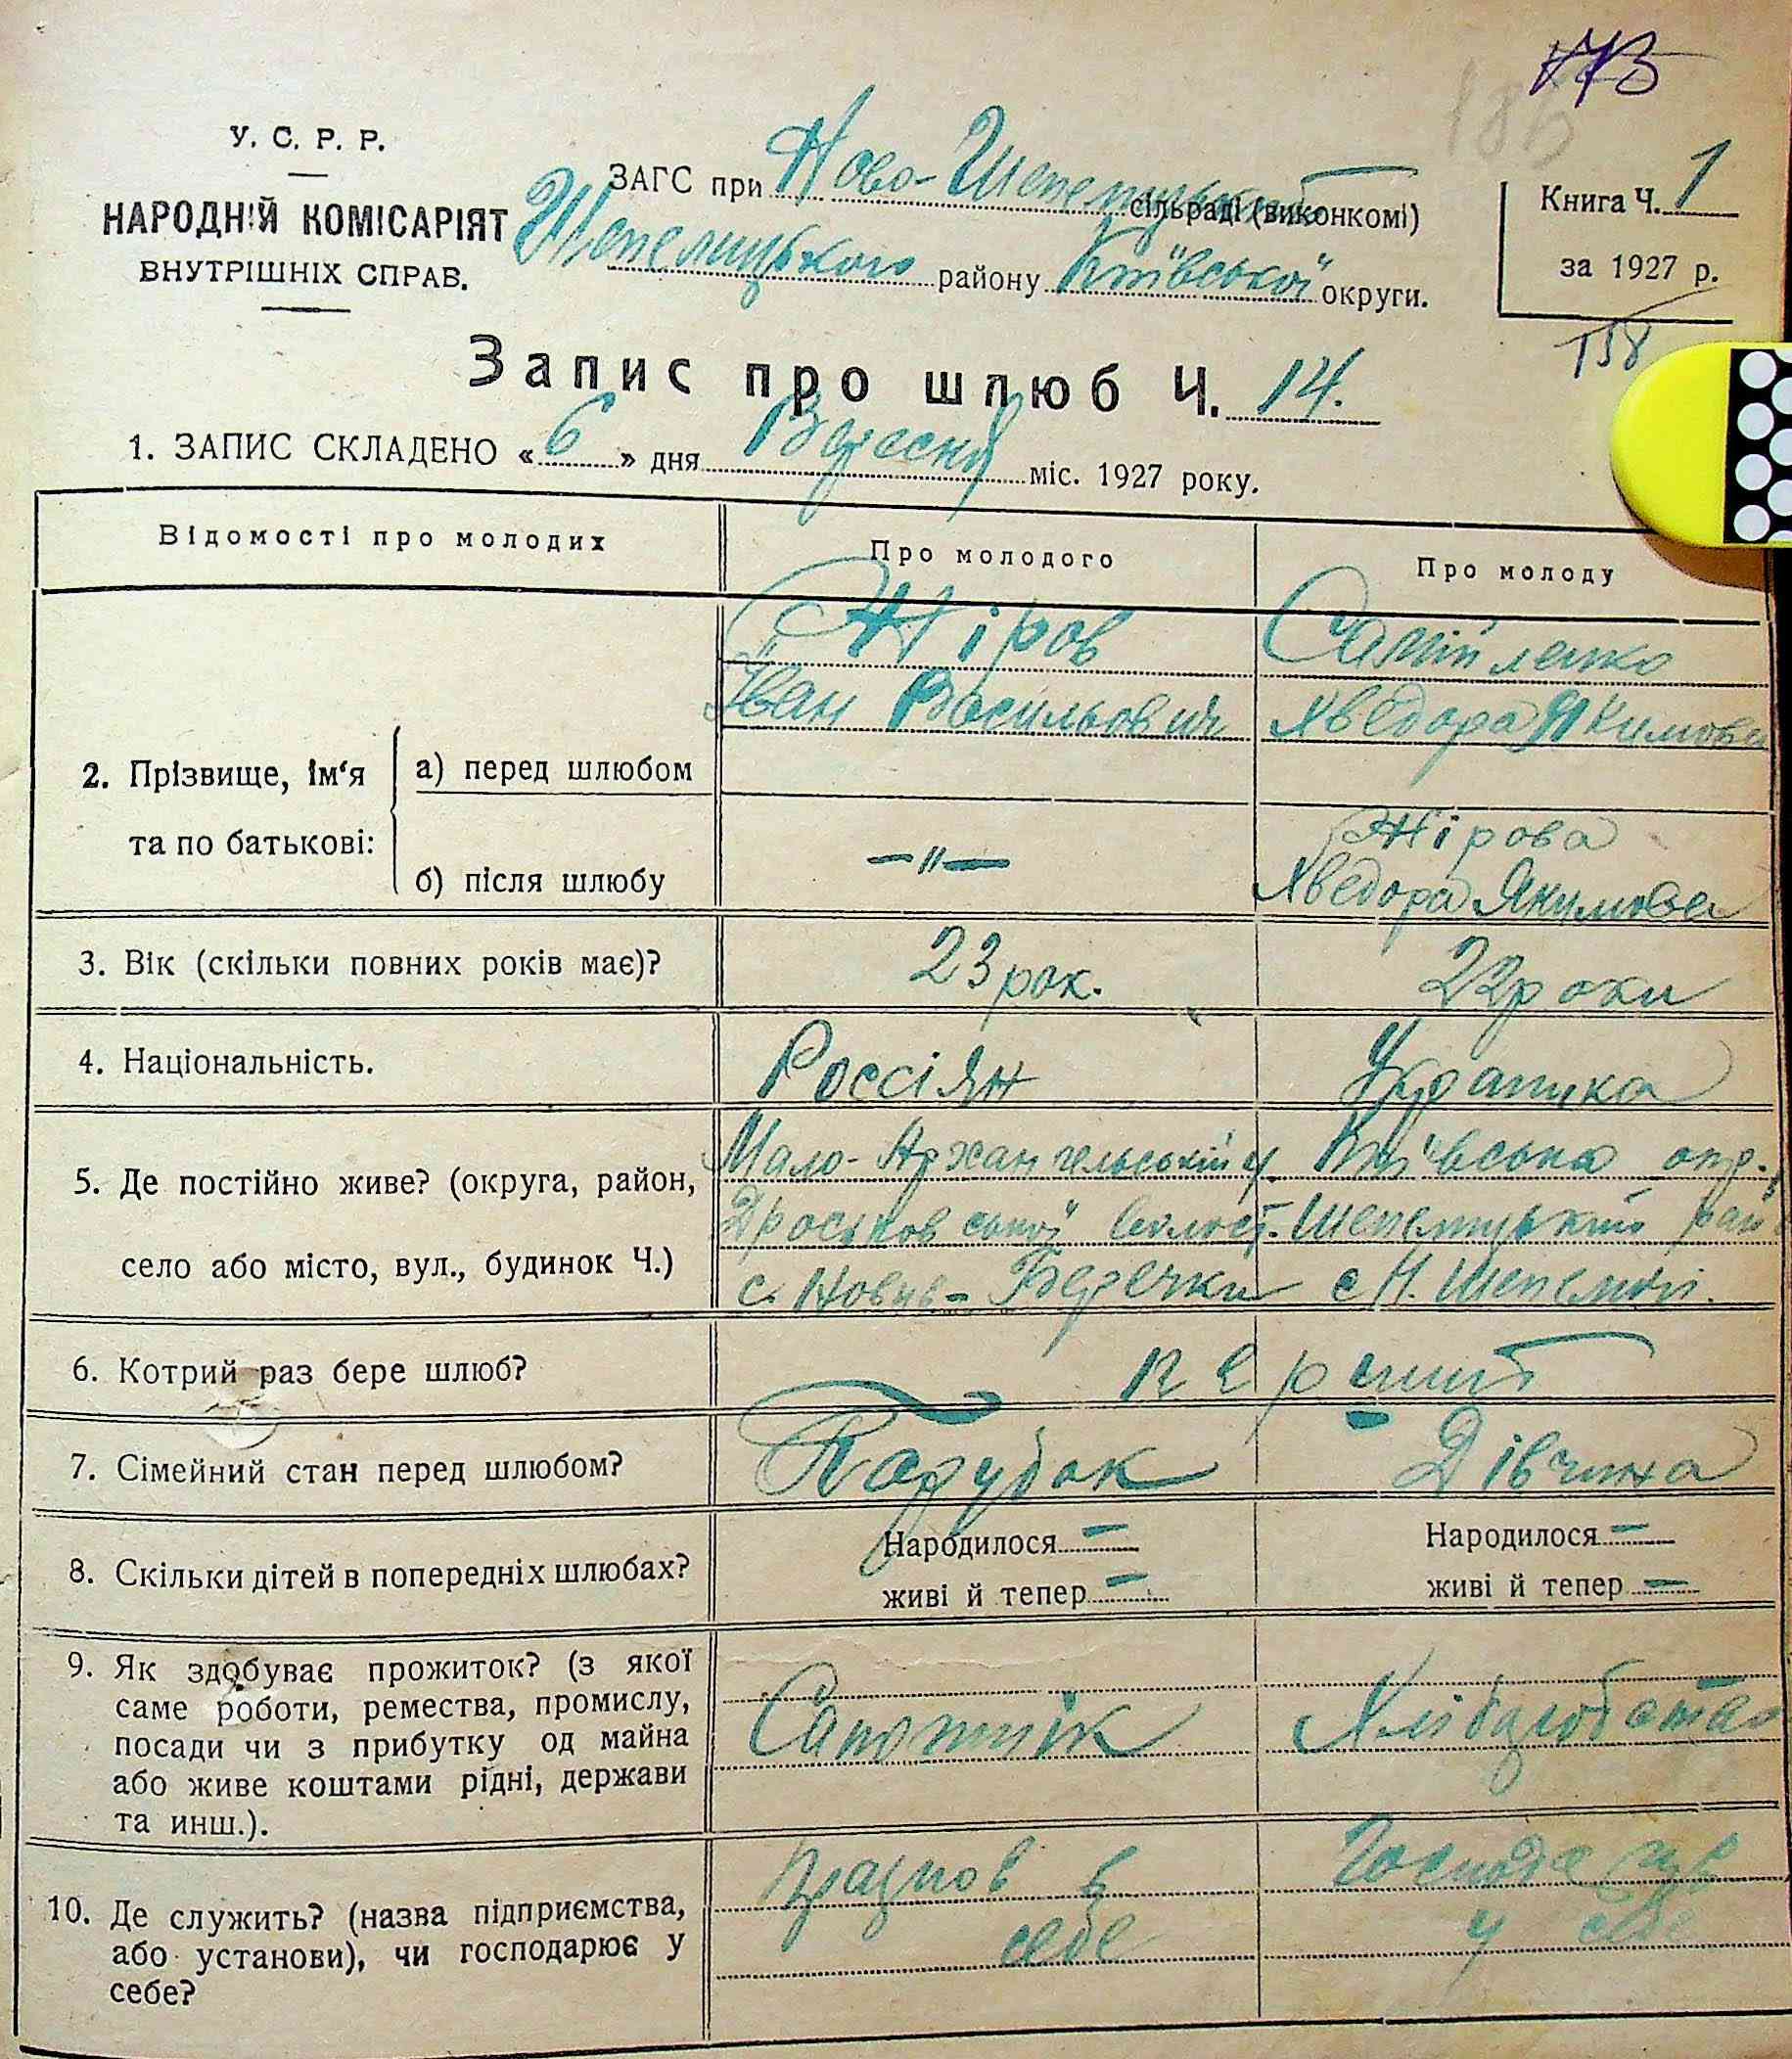 173
186
У. С. Р. Р.
НАРОДНІЙ КОМІСАРІЯТ
ВНУТРІШНІХ СПРАВ.
ЗАГС при Ново-Шепелицький сільраді (виконкомі)
Шепелицького району Київської округи.
Книга Ч. 1
за 1927 р.
158
Запис про шлюб Ч. 14.
1. ЗАПИС СКЛАДЕНО « 6 » дня Вересня міс. 1927 року.
Відомості про молодих
Про молодого
Про молоду
2. Прізвище, ім'я та по батькові:
а) перед шлюбом
Жіров
Іван Васильович
Самійленко
Хведора Якимовна
б) після шлюбу
—"—
Жірова
Хведора Якимовна
3. Вік (скільки повних років має)?
23 рок.
22 роки
4. Національність.
Россіян
Украинка
5. Де постійно живе? (округа, район,
село або місто, вул., будинок Ч.)
Мало-Архангельський у.
Дросковської волост.
с. Нових-Беречки
Київська окр.
Шепелицький рай
с Н. Шепеличі.
6. Котрий раз бере шлюб?
перший
7. Сімейний стан перед шлюбом?
Парубок
Дівчина
8. Скільки дітей в попередніх шлюбах?
Народилося —
живі й тепер —
Народилося —
живі й тепер —
9. Як здобуває прожиток? (з якої
саме роботи, ремества, промислу,
посади чи з прибутку од майна
або живе коштами рідні, держави
та инш.).
Сапожнік
Хлібаробство
10. Де служить? (назва підприємства,
або установи), чи господарює у
себе?
працюв у
себе
Господарув
у себе